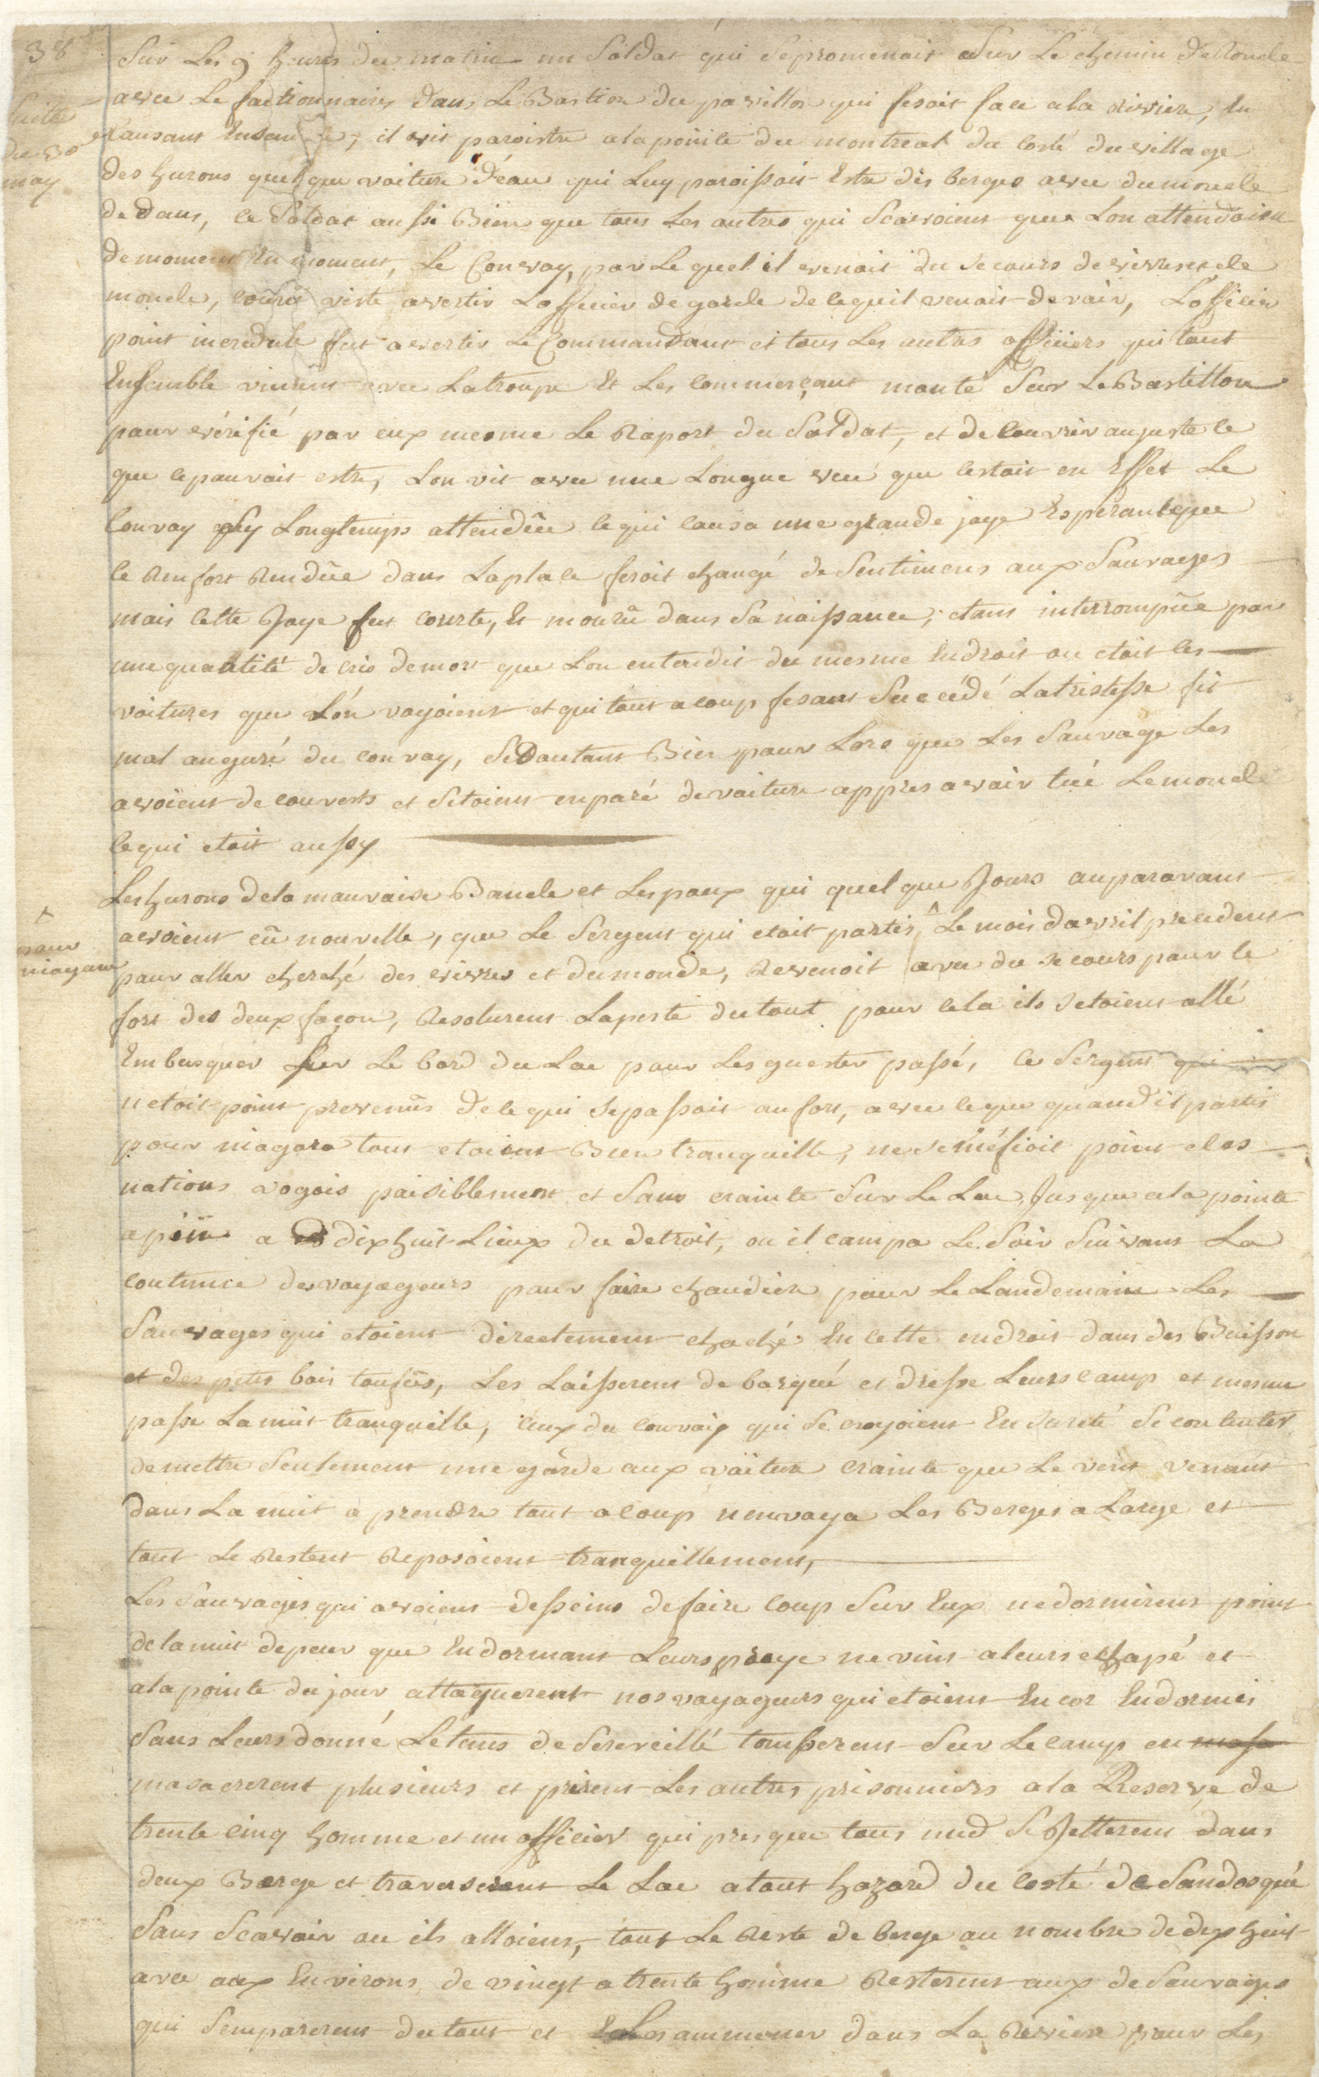 38
Suitte
du 30
may
Sur Les 9 heures du matin un Soldat qui Sepromenait Sur Le chemin deRonde
avec Le factionnaires dans Le Bastion du pavillon qui fesoit face ala riviere, En
Causant Ensemble, il vit paroistre ala pointe du montreal du costé du village
des hurons quelque voiture d'éau qui Luy paroissoit Estre des berges avec dumonde
dedans, ce Soldat aussi Bien que tous Les autres qui Scavoient que Lon attendoient
demoment En moment, Le Convoy, par Lequel il venoit du secours de vivres et de
monde, couru viste avertir Lofficier de garde de cequil venait de voir, Lofficier
point incredule fut avertir Le Commandant et tous Les autres officiers qui tout
Ensemble vinrent avec Latroupe Et Les Commerçant monté Sur Le Bastillon
pour vérifié par eux mesme Le Raport du Soldat, et decouvrir aujuste ce
que cepouvoit estre, Lon vit avec une Longue veü que cestoit en Effet Le
Convoy Sy Longtemps attendüe cequi causa une grande joye Esperant que
ce Renfort Rendüe dans Laplace feroit changé de Sentimens aux Sauvages
mais cette Joye fut courte, Et mourü dans Sa naissance, etant interrompüe par
une quantité de cris demort que Lon entendit du mesme Endroit ou etoit les
voitures que L'ón voyoient et qui tout acoup fesant Succédé Latristesse fit
mal auguré du convoy, Sedoutant Bien pour Lors que Les Sauvage Les
avoient decouverts et Setoient enparé devoiture appres avoir tüé Lemonde
cequi etoit aussy
Les hurons dela mauvaise Bande et Lespoux qui quelque Jours auparavant
avoient eü nouvelle, que Le Sergent qui etoit partis ^ Le mois davril precedent
^ pour
niagara
pour aller cherché des vivres et dumonde, Revenoit avec du secours pour le
fort des deux façon, Resolurent Laperte dutout pour cela ils setoient allé
Embusquer Sur Le bord du Lac pour Les guester passé, ce Sergent qui
netoit point prevenüs de ce qui Sepassoit aufort, avec ceque quand il partis
pour niagara tout etoient Bien tranquille, ne se méfioit point des
nations vogois paisiblement et Sans crainte Sur Le Lac Jusque ala pointe
apiin a dixhuit Lieux du detroit, ou il campa Le Soir Suivant La
coutume des voyageurs pour faire chaudiere pour Le Landemain Les
Sauvages qui etoient directement chaché En cette endroit dans des Buisson
et des petits bois toufüs, Les Laisserent debarqué et dresse Leurs camp et mesme
passe La nuit tranquille, Ceux du convois qui Se croyoient En sureté Se contenter
demettre Seulement une gârde aux voiture crainte que Le vent venant
dans La nuit a prendre tout acoup nenvoya Les Berges a Large et
tout Le Restent Reposoient tranquillement,
Les Sauvages qui avoient desseins defaire coup Sur Eux nedormirent point
delanuit depeur que Endormant Leurs proye ne vint aleurs echapé et
alapointe du jour attaquerent nos voyageurs qui etoient Encor Endormis
Sans Leurs donné Letems de Sereveillé tomberent Sur Le camp en masa
masacrerent plusieurs et prirent Les autres prisonniers ala Reserve de
trente cinq homme et un officier qui presque tous nud Se Jetterent dans
deux Berge et traverserent Le Lac atout hazard du costé de Sandosqué
Sans Scavoir ou ils alloient, tout Le Reste de berge au nombre de dix huit
avec aux Environs de vingt a trente homme Resterent aux de Sauvages
qui Semparerent dutout et Les ammener dans La Riviere pour Les